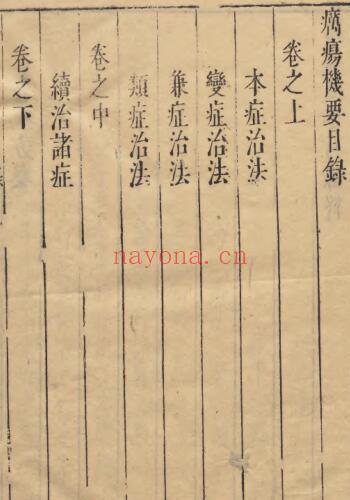 癘瘍機要目錄
卷之上
本症治法
變症治法
兼症治法
類症治法
卷之中
續治諸症
卷之下
nayona.cn